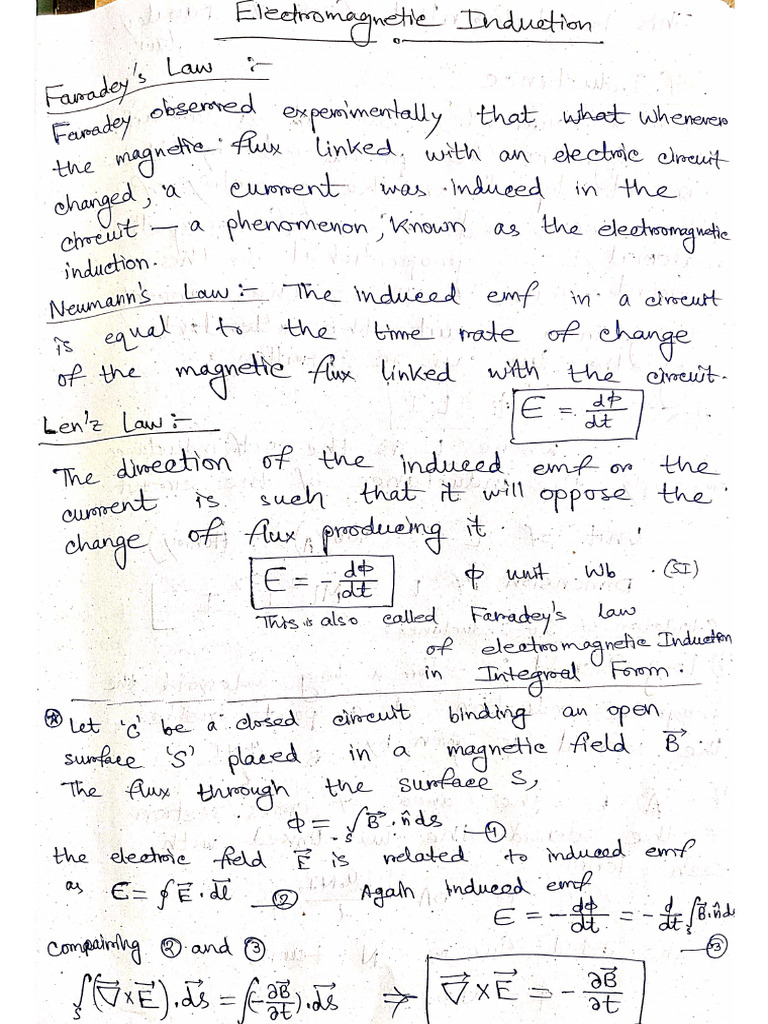 Electromagnetic Induction
Farradey's Law :-
Farradey observed experimentally that what whenever
the magnetic flux linked with an electric circuit
changed, a current was induced in the
circuit — a phenomenon, known as the electromagnetic
induction.
Neumann's Law :- The induced emf in a circuit
is equal to the time rate of change
of the magnetic flux linked with the circuit.
Є = dΦ/dt
Len'z Law :-
The direction of the induced emf or the
current is such that it will oppose the
change of flux producing it.
Є = - dΦ/dt Φ unit Wb (SI)
This is also called Farradey's law
of electromagnetic Induction
in Integral Form.
⊛ Let 'C' be a closed circuit binding an open
surface 'S' placed in a magnetic field B⃗
The flux through the surface S,
Φ = ∫ₛ B⃗ . n̂ ds —①
the electric field E⃗ is related to induced emf
as Є = ∮ E⃗ . dl⃗ —② Again Induced emf
Є = - dΦ/dt = - d/dt ∫ₛ B⃗ . n̂ ds
—③
Compairing ② and ③
∫ₛ (∇⃗ × E⃗) . ds⃗ = ∫ (- ∂B⃗/∂t) . ds⃗ ⇒ ∇⃗ × E⃗ = - ∂B⃗/∂t